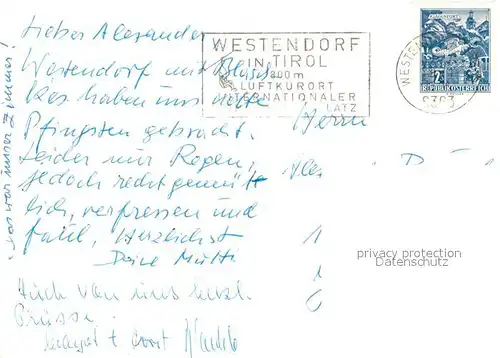 Lieber Alexander,
Westendorf mit
haben uns nette
Pfingsten gebracht.
Leider nur Regen,
jedoch recht gemüt-
lich, verfressen und
faul, Herzlichst
Deine Mutti
Auch von uns herzl.
Grüsse
das war unser Zimmer!
WESTENDORF
IN TIROL
800m
LUFTKURORT
INTERNATIONALER
LATZ
2S
REPUBLIK ÖSTERREICH
WESTEN
Herrn
Alex
privacy protection
Datenschutz